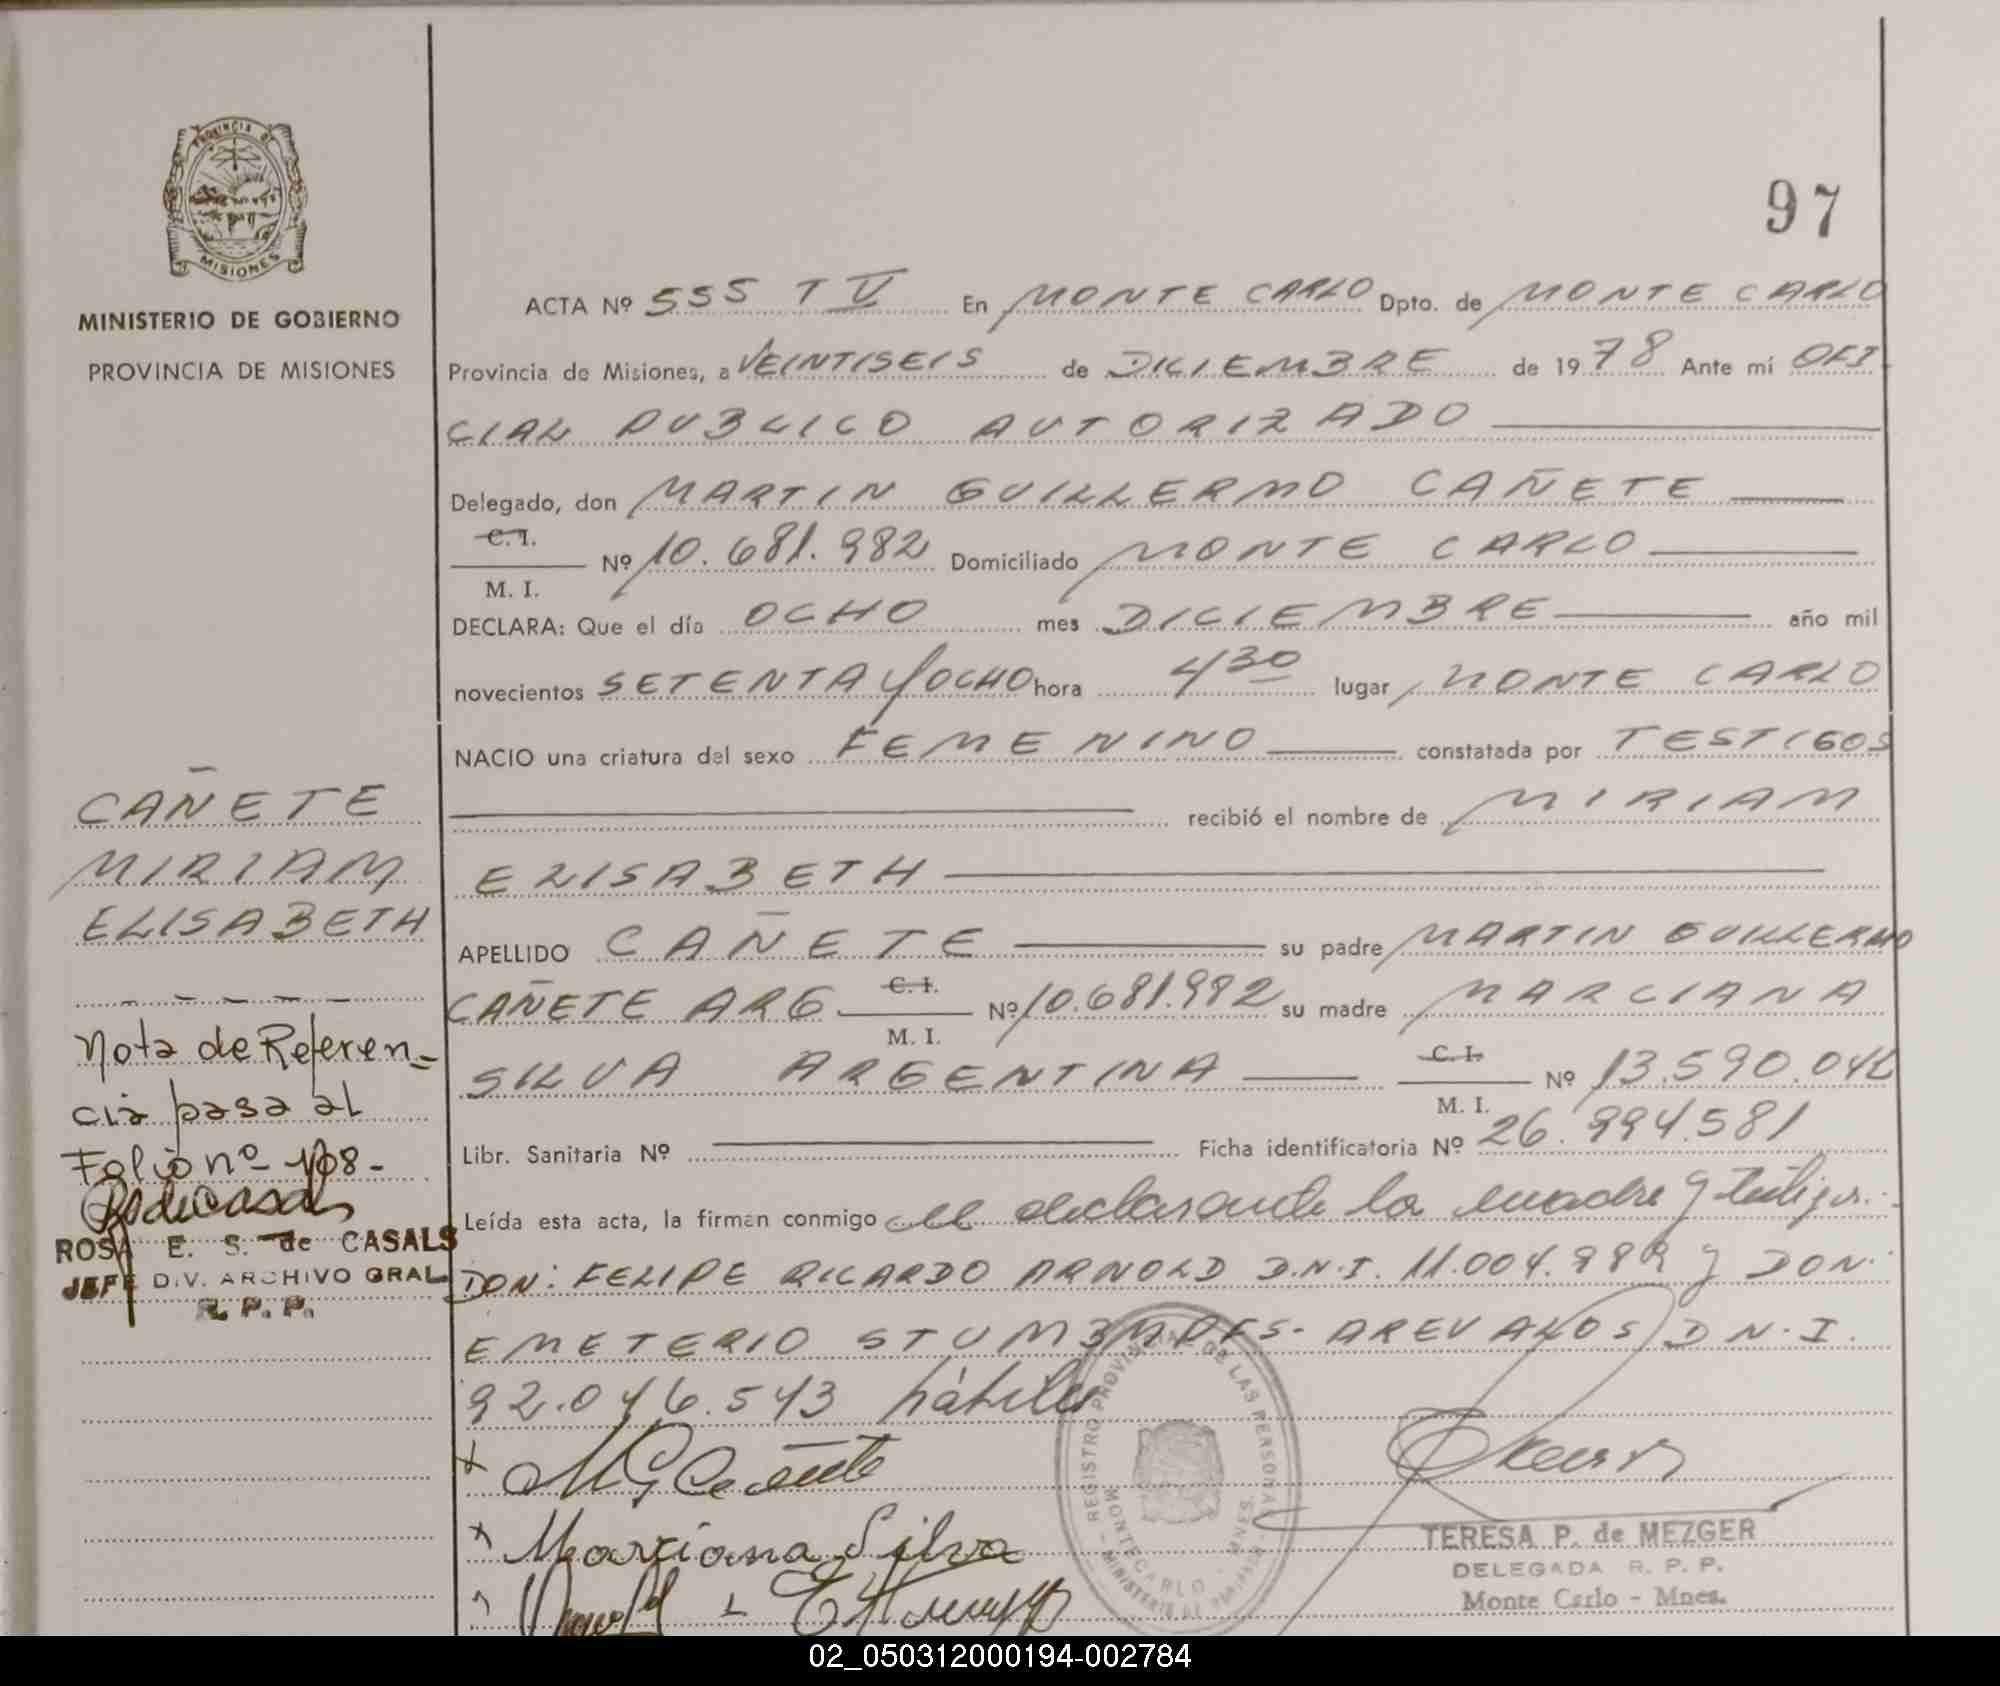 PROVINCIA DE
MISIONES
MINISTERIO DE GOBIERNO
PROVINCIA DE MISIONES
97
ACTA Nº 555 T V En MONTE CARLO Dpto. de MONTE CARLO
Provincia de Misiones, a VEINTISEIS de DICIEMBRE de 1978 Ante mí OFI-
CIAL PUBLICO AUTORIZADO
Delegado, don MARTIN GUILLERMO CAÑETE
C.I.
M. I. Nº 10.681.982 Domiciliado MONTE CARLO
DECLARA: Que el día OCHO mes DICIEMBRE año mil
novecientos SETENTA Y OCHO hora 4 30 lugar MONTE CARLO
NACIO una criatura del sexo FEMENINO constatada por TESTIGOS
recibió el nombre de MIRIAM
ELISABETH
APELLIDO CAÑETE su padre MARTIN GUILLERMO
CAÑETE ARG C.I. M. I. Nº 10.681.982 su madre MARCIANA
SILVA ARGENTINA C.I. M. I. Nº 13.590.042
Libr. Sanitaria Nº Ficha identificatoria Nº 26.994.581
Leída esta acta, la firman conmigo el declarante la madre y testigos:
DON: FELIPE RICARDO ARNOLD D.N.I. 11.004.989 y DON:
EMETERIO AREVALOS D.N.I.
92.046.543 hábiles
CAÑETE
MIRIAM
ELISABETH
Nota de Referen-
cia pasa al
Folio nº 108-
ROSA E. S. de CASALS
JEFE DIV. ARCHIVO GRAL
R. P. P.
M G Cañete
Marciana Silva
REGISTRO PROVINCIAL DE LAS PERSONAS
MONTECARLO - MNES.
TERESA P. de MEZGER
DELEGADA R. P. P.
Monte Carlo - Mnes.
02_050312000194-002784